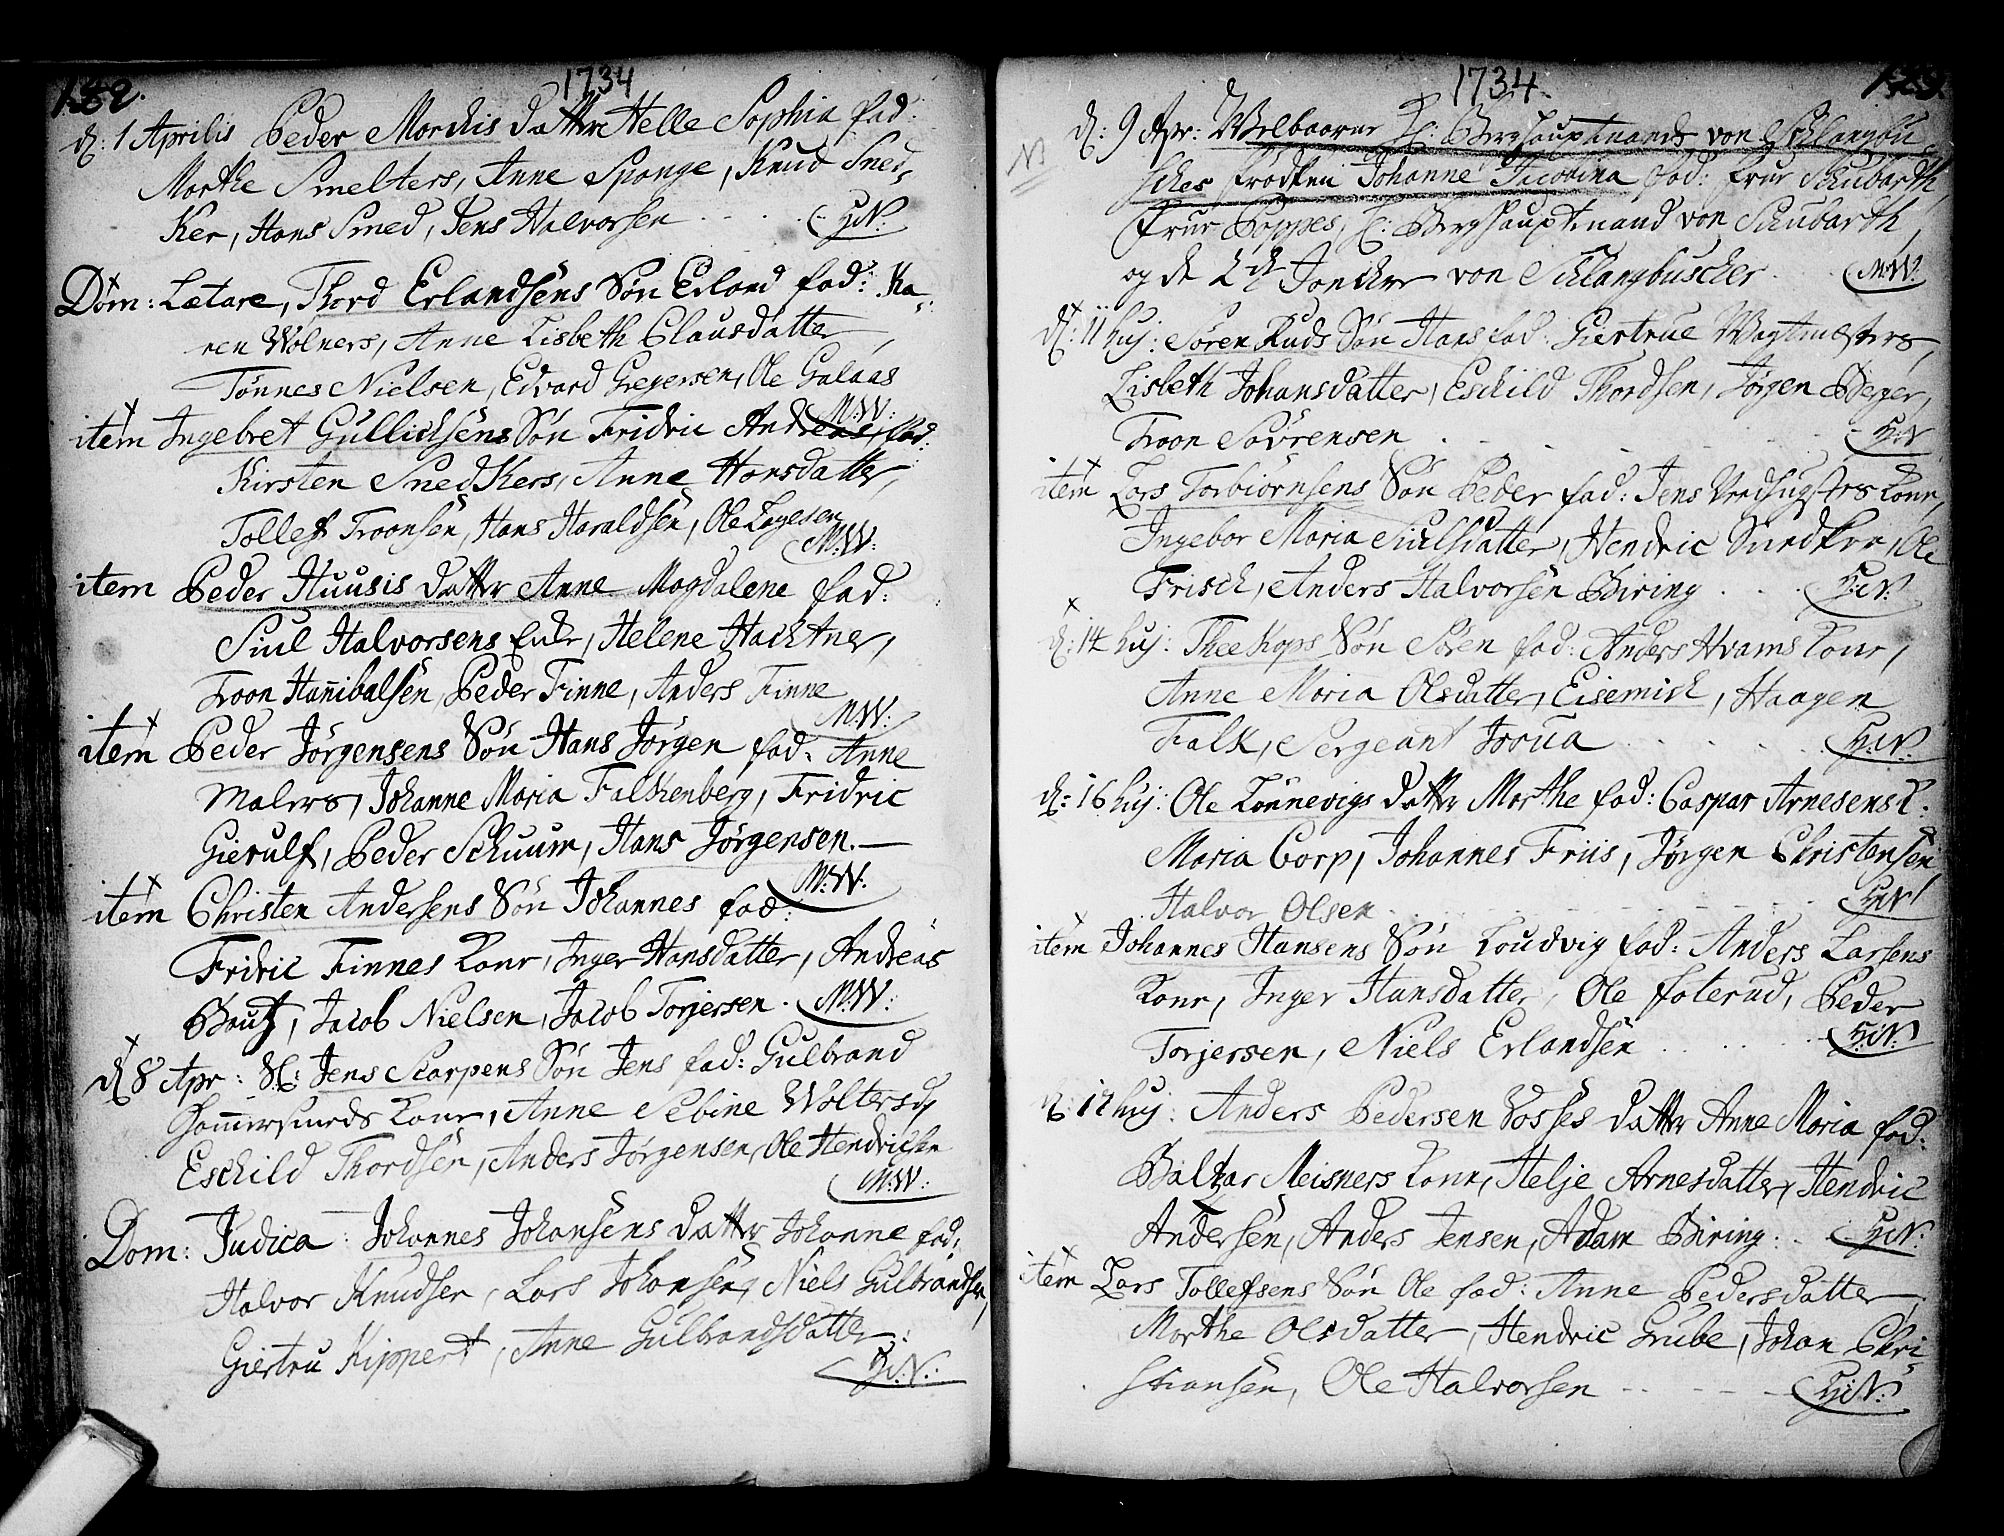 182.
1734
d: 1 Aprilis Peder Morchis datter Helle Sophia fad:
Morthe Smelters, Anne Spange, Knud Sned,
Ker, Hans Smed, Jens Halvorsen H:N:
Dom: Lætare, Thord Erlandsens Søn Erland fad: Ka,,
ren Wolners, Anne Lisbeth Clausdatter,
Tønnes Nielsen, Edvard Gregersen, Ole Galaas
M:W:
item Ingebret Gullichsens Søn Fridric Andreas, fad:
Kirsten Snedkers, Anne Hansdatter,
Tollef Troonsen, Hans Haraldsen, Ole Lagesen
M:W:
item Peder Huusis datter Anne Magdalene fad:
Siul Halvorsens Enke, Helene Hachtner,
Troon Hanibalsen, Peder Finne, Anders Finne
M:W:
item Peder Jørgensens Søn Hans Jørgen fad: Anne
Malers, Johanne Maria Falkenberg, Fridric
Gierulf, Peder Schuum, Hans Jørgensen.
M:W:
item Christen Andersens Søn Johannes fad:
Fridric Finnes Konr, Inger Hansdatter, Andreas
Bautz, Jacob Nielsen, Jacob Torjersen. M:W:
d 8 Apr: Jens Scarpens Søn Jens fad: Gulbrand
Hammersmeds Konr, Anne Sebine Woltersd,
Eschild Thordsen, Anders Jørgensen, Ole Hendrichsen
M:W:
Dom: Judica: Johannes Johansens datter Johanne fad:
Halvor Knudsen, Lars Johansen, Niels Gulbrandsen,
Giertru Kippert, Anne Gulbrandsdatter
H:N:
1734
183.
NB
d: 9 Apr: Welbaarne H: Berghauptmands von Schlangbu
sches frøcken Johanne Jacobina fad: Frue Schubarth,
Frue Poppes, H: Berghauptmand von Schubarth,
og de 2de Joncker von Schlangbuscher M:W:
d: 11 huj: Søren Ruds Søn Hans fad: Giertrue Wagtmesters,
Lisbeth Johansdatter, Eschild Thordsen, Jørgen Berger,
Troon Sørensen H:N
item Lars Torbiørnsens Søn Peder fad: Jens Konr,
Ingebor Maria Siulsdatter, Hendric Snedker, Ole
Frisch, Anders Halvorsen Biring H:N:
d: 14 huj: Thee Kops Søn Søren fad: Anders Hvams Konr,
Anne Maria Olsdatter, Eisemisk, Haagen
Falk, Sergeant Josua H:N:
d: 16 huj: Ole Lønnevigs datter Morthe fad: Caspar Arnesens K.
Maria Corp, Johannes Friis, Jørgen Christensen,
Halvor Olsen H:N
item Johannes Hansens Søn Loudvig fad: Anders Larsens
Konr, Inger Hansdatter, Ole Foterud, Peder
Torjersen, Niels Erlandsen H:N:
d: 17 huj: Anders Pedersen Vosses datter Anne Maria fad:
Baltzar Meisners Konr, Helje Arnesdatter, Hendric
Andersen, Anders Jensen, Adam Biring: H:N:
item Lars Tollefsens Søn Ole fad: Anne Pedersdatter
Morthe Olsdatter, Hendric Grube, Johan Chri,
stiansen, Ole Halvorsen H:N: